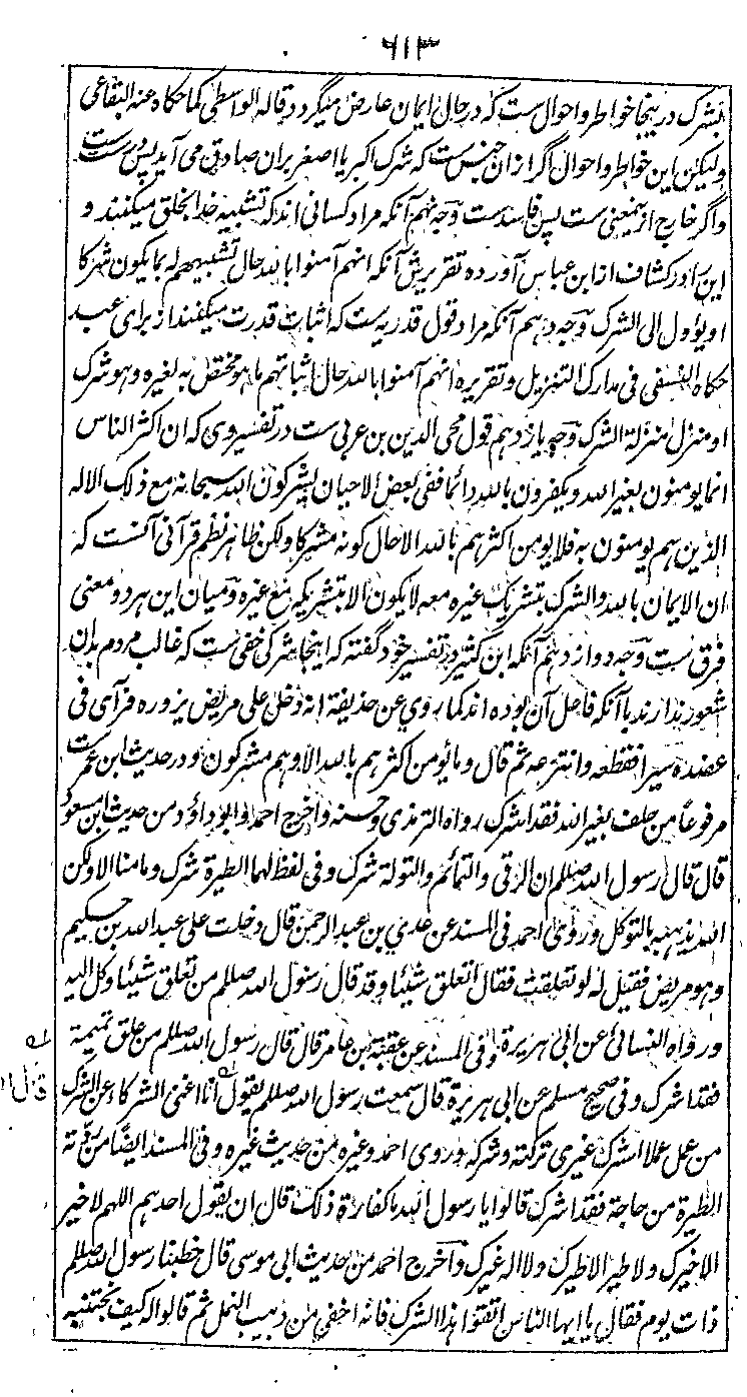 ۶۱۳
بشرک درینجا خواطر و احوال ست که در حال ایمان عارض میگردد قاله الواسطی کما حکاه عنه البقاعی
ولیکن این خواطر و احوال اگر ازان جنس ست که شرک اکبر یا اصغر بران صادق می آید پس درست ست
واگر خارج ازینمعنی ست پس فاسد ست وجه نهم آنکه مراد کسانی اند که تشبیه خدا بخلق میکنند و
این را در کشاف از ابن عباس آورده تقریرش آنکه انهم آمنوا بالله حال تشبیههم له بما یکون شرکا
او یؤول الی الشرک وجه دهم آنکه مراد قول قدریه ست که اثبات قدرت میکنند از برای عبد
حکاه النسفی فی مدارک التنزیل و تقریره انهم آمنوا بالله حال اثباتهم ما هو مختص به لغیره وهو شرک
او منزل منزلة الشرک وجه یازدهم قول محی الدین بن عربی ست در تفسیر وی که ان اکثر الناس
انما یومنون بغیر الله و یکفرون بالله دائما ففی بعض الاحیان یشرکون الله سبحانه مع ذلک الاله
الذین هم یومنون به فلا یومن اکثرهم بالله الا حال کونه مشرکا ولکن ظاهر نظم قرآنی آنست که
ان الایمان بالله والشرک بتشریک غیره معه لا یکون الا بتشریکه مع غیره و میان این هر دو معنی
فرق ست وجه دوازدهم آنکه ابن کثیر در تفسیر خود گفته که اینجا شرکی خفی ست که غالب مردم بدان
شعور ندارند با آنکه فاعل آن بوده اند کما روی عن حذیفة انه دخل علی مریض یزوره فرآی فی
عضده سیرا فقطعه وانتزعه ثم قال وما یومن اکثرهم بالله الا وهم مشرکون و در حدیث ابن عمرست
مرفوعا من حلف بغیر الله فقد اشرک رواه الترمذی وحسنه واخرج احمد وابو داؤد من حدیث ابن مسعود
قال قال رسول الله صللم ان الرقی والتمائم والتولة شرک وفی لفظ لهما الطیرة شرک وما منا الا ولکن
الله یذهبه بالتوکل وروی احمد فی المسند عن عدی بن عبد الرحمن قال دخلت علی عبد الله بن حکیم
وهو مریض فقیل له لو تعلقت فقال اتعلق شیئا وقد قال رسول الله صللم من تعلق شیئا وکل الیه
ورواه النسائی عن ابی هریرة وفی المسند عن عقبة بن عامر قال قال رسول الله صللم من علق تمیمة
فقد اشرک وفی صحیح مسلم عن ابی هریرة قال سمعت رسول الله صللم یقول انا اغنی الشرکاء عن الشرک
من عمل عملا اشرک غیری ترکته وشرکه وروی احمد وغیره من حدیث غیره وفی المسند ایضا من ردته
الطیرة من حاجة فقد اشرک قالوا یا رسول الله ما کفارة ذلک قال ان یقول احدهم اللهم لا خیر
الا خیرک ولا طیر الا طیرک ولا اله غیرک واخرج احمد من حدیث ابی موسی قال خطبنا رسول الله صللم
ذات یوم فقال یا ایها الناس اتقوا هذا الشرک فانه اخفی من دبیب النمل ثم قالوا له کیف نجتنبه